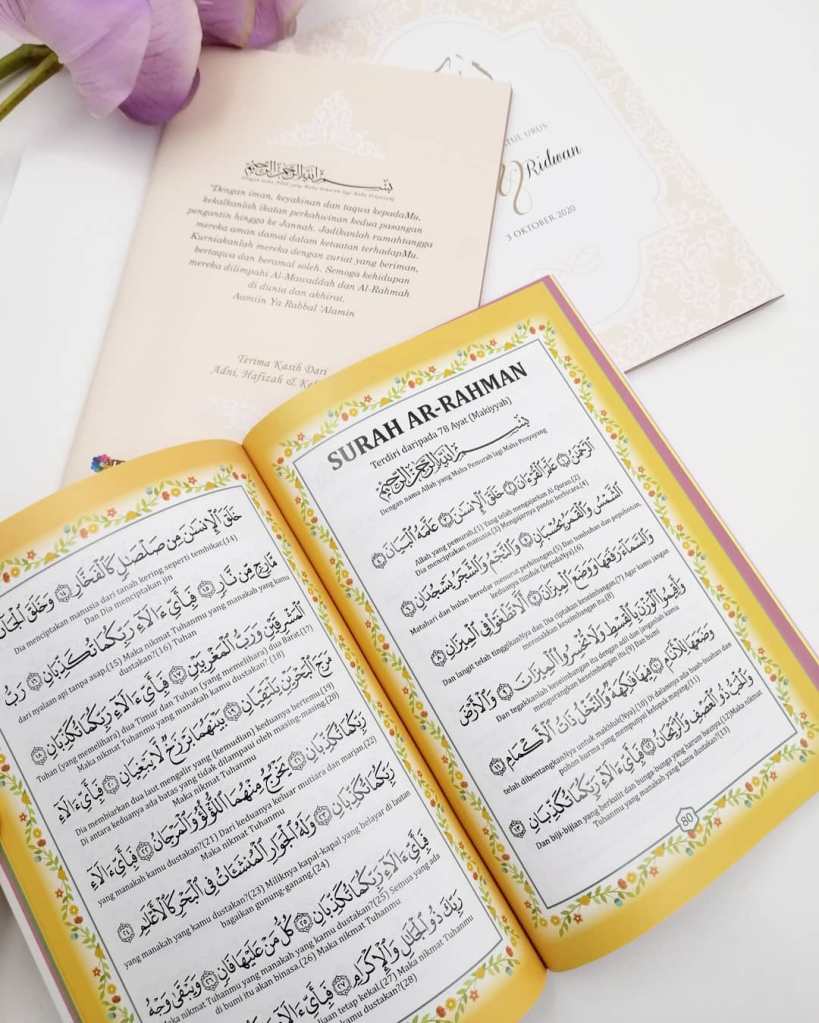 بِسْمِ اللَّهِ الرَّحْمَٰنِ الرَّحِيمِ
Dengan nama Allah yang Maha Pemurah lagi Maha Penyayang
"Dengan iman, keyakinan dan taqwa kepadaMu,
kekalkanlah ikatan perkahwinan kedua pasangan
pengantin hingga ke Jannah. Jadikanlah rumahtangga
mereka aman damai dalam ketaatan terhadapMu.
Kurniakanlah mereka dengan zuriat yang beriman,
bertaqwa dan beramal soleh. Semoga kehidupan
mereka dilimpahi Al-Mawaddah dan Al-Rahmah
di dunia dan akhirat.
Aamiin Ya Rabbal 'Alamin
Terima Kasih Dari
Adni, Hafizah &
URUS
Ridwan
3 OKTOBER 2020
SURAH AR-RAHMAN
Terdiri daripada 78 Ayat (Makiyyah)
بِسْمِ اللَّهِ الرَّحْمَٰنِ الرَّحِيمِ
Dengan nama Allah yang Maha Pemurah lagi Maha Penyayang
ٱلرَّحْمَٰنُ ١ عَلَّمَ ٱلْقُرْءَانَ ٢ خَلَقَ ٱلْإِنسَٰنَ ٣ عَلَّمَهُ ٱلْبَيَانَ ٤
Allah yang pemurah.(1) Yang telah mengajarkan Al-Quran.(2)
Dia menciptakan manusia.(3) Mengajarnya pandai berbicara.(4)
ٱلشَّمْسُ وَٱلْقَمَرُ بِحُسْبَانٍ ٥ وَٱلنَّجْمُ وَٱلشَّجَرُ يَسْجُدَانِ ٦
Matahari dan bulan beredar menurut perhitungan.(5) Dan tumbuhan dan pepohonan,
keduanya tunduk (kepadaNya).(6)
وَٱلسَّمَآءَ رَفَعَهَا وَوَضَعَ ٱلْمِيزَانَ ٧ أَلَّا تَطْغَوْا۟ فِى ٱلْمِيزَانِ ٨
Dan langit telah tinggikanNya dan Dia ciptakan keseimbangan.(7) Agar kamu jangan
merosakkan keseimbangan itu.(8)
وَأَقِيمُوا۟ ٱلْوَزْنَ بِٱلْقِسْطِ وَلَا تُخْسِرُوا۟ ٱلْمِيزَانَ ٩ وَٱلْأَرْضَ
Dan tegakkanlah keseimbangan itu dengan adil dan janganlah kamu
mengurangkan keseimbangan itu.(9) Dan bumi
وَضَعَهَا لِلْأَنَامِ ١٠ فِيهَا فَٰكِهَةٌ وَٱلنَّخْلُ ذَاتُ ٱلْأَكْمَامِ ١١
telah dibentangkanNya untuk makhluk(Nya).(10) Di dalamnya ada buah-buahan dan
pohon kurma yang mempunyai kelopak mayang.(11)
وَٱلْحَبُّ ذُو ٱلْعَصْفِ وَٱلرَّيْحَانُ ١٢ فَبِأَىِّ ءَالَآءِ رَبِّكُمَا تُكَذِّبَانِ ١٣
Dan biji-bijian yang berkulit dan bunga-bunga yang harum baunya.(12)Maka nikmat
Tuhanmu yang manakah yang kamu dustakan?(13)
80
خَلَقَ ٱلْإِنسَٰنَ مِن صَلْصَٰلٍ كَٱلْفَخَّارِ ١٤ وَخَلَقَ ٱلْجَانَّ
Dia menciptakan manusia dari tanah kering seperti tembikar.(14)
Dan Dia menciptakan jin
مَّارِجٍ مِّن نَّارٍ ١٥ فَبِأَىِّ ءَالَآءِ رَبِّكُمَا تُكَذِّبَانِ ١٦ رَبُّ
dari nyalaan api tanpa asap.(15) Maka nikmat Tuhanmu yang manakah yang kamu
dustakan?(16) Tuhan
ٱلْمَشْرِقَيْنِ وَرَبُّ ٱلْمَغْرِبَيْنِ ١٧ فَبِأَىِّ ءَالَآءِ رَبِّكُمَا تُكَذِّبَانِ ١٨
Tuhan (yang memelihara) dua Timur dan Tuhan (yang memelihara) dua Barat.(17)
Maka nikmat Tuhanmu yang manakah yang kamu dustakan? (18)
مَرَجَ ٱلْبَحْرَيْنِ يَلْتَقِيَانِ ١٩ بَيْنَهُمَا بَرْزَخٌ لَّا يَبْغِيَانِ ٢٠ فَبِأَىِّ ءَالَآءِ
Dia membiarkan dua laut mengalir yang (kemudian) keduanya bertemu.(19)
Di antara keduanya ada batas yang tidak dilampaui oleh masing-masing.(20)
Maka nikmat Tuhanmu
رَبِّكُمَا تُكَذِّبَانِ ٢١ يَخْرُجُ مِنْهُمَا ٱللُّؤْلُؤُ وَٱلْمَرْجَانُ ٢٢ فَبِأَىِّ ءَالَآءِ
yang manakah kamu dustakan?(21) Dari keduanya keluar mutiara dan marjan.(22)
Maka nikmat Tuhanmu
رَبِّكُمَا تُكَذِّبَانِ ٢٣ وَلَهُ ٱلْجَوَارِ ٱلْمُنشَـَٔاتُ فِى ٱلْبَحْرِ كَٱلْأَعْلَٰمِ ٢٤
yang manakah yang kamu dustakan?(23) Miliknya kapal-kapal yang belayar di lautan
bagaikan gunung-ganang.(24)
فَبِأَىِّ ءَالَآءِ رَبِّكُمَا تُكَذِّبَانِ ٢٥ كُلُّ مَنْ عَلَيْهَا فَانٍ ٢٦ وَيَبْقَىٰ وَجْهُ
Maka nikmat Tuhanmu yang manakah yang kamu dustakan?(25) Semua yang ada
di bumi itu akan binasa.(26) Maka nikmat Tuhanmu
رَبِّكَ ذُو ٱلْجَلَٰلِ وَٱلْإِكْرَامِ ٢٧ فَبِأَىِّ ءَالَآءِ رَبِّكُمَا تُكَذِّبَانِ
tetap kekal.(27) Maka nikmat Tuhanmu
kamu dustakan?(28)